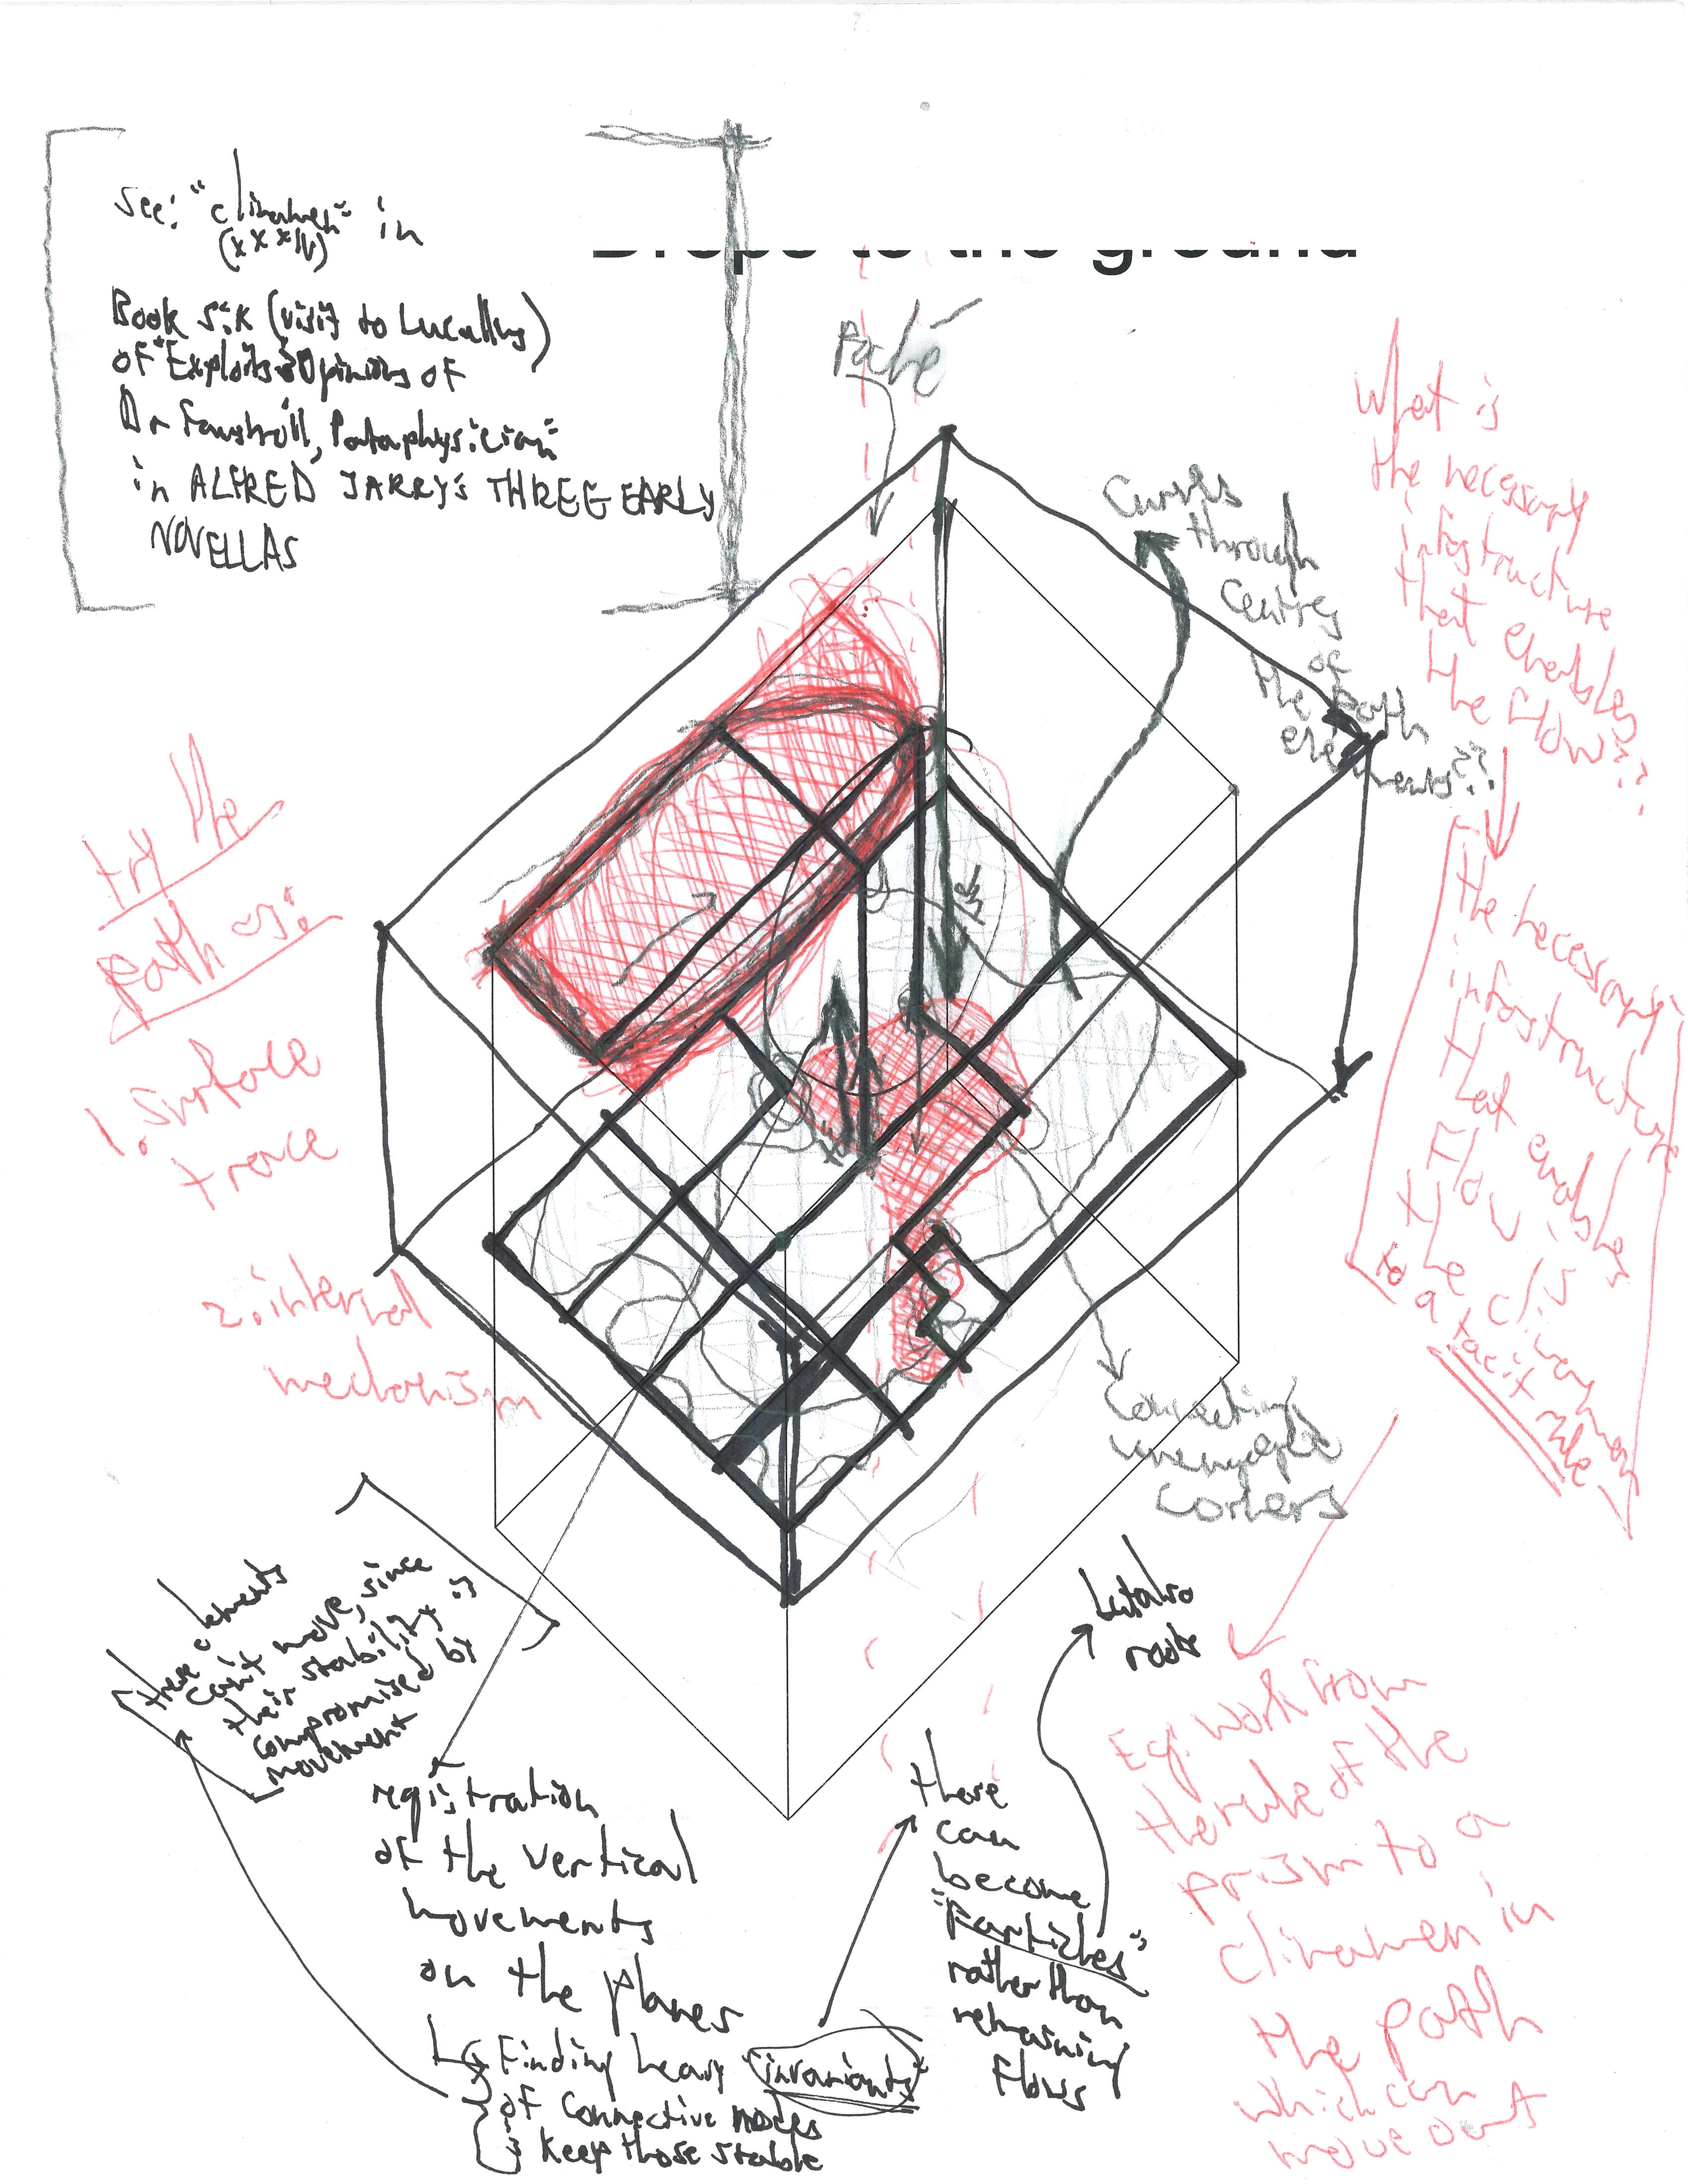 see: "clinamen" in
(XXXIV)
Book six (visit to Lucullus)
of "Exploits & Opinions of
Dr Faustroll, Pataphysician"
in ALFRED JARRY'S THREE EARLY
NOVELLAS
Drops to the ground
Path
Curves
through
Centres
of
the path
elements??
What is
the necessary
infastructure
that enables
the flow??
the necessary
infastructure
that enables
Flow is
the clinamen
to a tacit rule
try the
path as:
1. surface
trace
2. internal
mechanism
Connecting
corners
these elements
can't move, since
their stability is
compromised by
movement
registration
of the vertical
movements
on the planes
Finding heavy "invariants"
of connective nodes
& keep those stable
these
can
become
"particles"
rather than
remaining
flows
but also
Eg: work from
the rule of the
prism to a
clinamen in
the path
which can
move